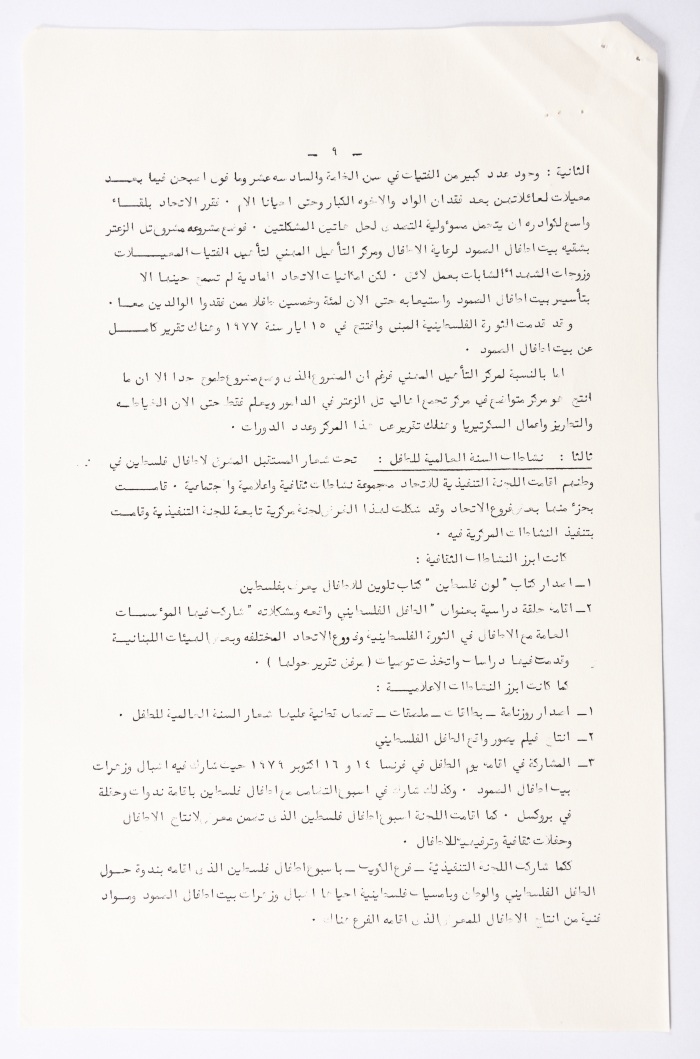 ـ ٩ ـ
الثانية : وجود عدد كبير من الفتيات في سن الخامسة والسادسه عشر وما فوق اصبحن فيما بعـــد
معيلات لعائلاتهن بعد فقدان الوالد والاخوه الكبار وحتى احيانا الام ٠ فقرر الاتحاد بلقـــاء
واسع لكوادره ان يتحمل مسؤولية التصدى لحل هاتين المشكلتين ٠ فوضع مشروعه مشروع تل الزعتر
بشقيه بيت اطفال الصمود لرعاية الاطفال ومركز التأهيل المهني لتأهيل الفتيات المعيـــــلات
وزوجات الشهداء الشابات بعمل لائق ٠ لكن امكانيات الاتحاد المادية لم تسمح حينها الا
بتأسيس بيت اطفال الصمود واستيعابه حتى الان لمئة وخمسين طفلا ممن فقدوا الوالدين معـا ٠
وقد قدمت الثورة الفلسطينية المبنى وافتتح في ١٥ ايار سنة ١٩٧٧ وهناك تقرير كامـــل
عن بيت اطفال الصمود ٠
اما بالنسبة لمركز التأهيل المهني فرغم ان المشروع الذى وضع مشروع طموح جدا الا ان ما
انتج هو مركز متواضع في مركز تجمع اهالي تل الزعتر في الدامور ويعلم فقط حتى الان الخياطــه
والتطاريز واعمال السكرتيريا وهنالك تقرير عن هذا المركز وعدد الدورات ٠
ثالثا : نشاطات السنة العالمية للطفل : تحت شعار المستقبل المشرق لاطفال فلسطين في
وطنهم اقامت اللجنة التنفيذية للاتحاد مجموعة نشاطات ثقافية واعلامية واجتماعية ٠ قامـــت
بجزء منها بعض فروع الاتحاد وقد شكلت لهذا الغرض لجنة مركزية تابعة للجنة التنفيذية وقامـت
بتنفيذ النشاطات المركزية فيه ٠
كانت ابرز النشاطات الثقافية :
١ــ اصدار كتاب "لون فلسطين" كتاب تلوين للاطفال يعرف بفلسطين
٢ــ اقامة حلقة دراسية بعنوان "الطفل الفلسطيني واقعه ومشكلاته" شاركت فيها المؤسسات
العامة مع الاطفال في الثورة الفلسطينية وفروع الاتحاد المختلفه وبعض الهيئات اللبنانية
وقدمت فيها دراسات واتخذت توصيات ( مرفق تقرير حولها ) ٠
كما كانت ابرز النشاطات الاعلاميــة :
١ــ اصدار روزنامة ــ بطاقات ــ ملصقات ــ قمصان قطنية عليها شعار السنة العالمية للطفل ٠
٢ــ انتاج فيلم يصور واقع الطفل الفلسطيني
٣ــ المشاركة في اقامة يوم الطفل في فرنسا ١٤ و ١٦ اكتوبر ١٩٧٩ حيث شارك فيه اشبال وزهرات
بيت اطفال الصمود ٠ وكذلك شارك في اسبوع التضامن مع اطفال فلسطين باقامة ندوات وحفلة
في بروكسل ٠ كما اقامت اللجنة اسبوع اطفال فلسطين الذى تضمن معرض لانتاج الاطفال
وحفلات ثقافية وترفيهية للاطفال ٠
ككما شاركت اللجنة التنفيذية ــ فرع الكويت ــ باسبوع اطفال فلسطين الذى اقامه بندوة حــول
الطفل الفلسطيني والوطن وبامسيات فلسطينية احياها اشبال وزهرات بيت اطفال الصمود ومــواد
فنية من انتاج الاطفال للمعرض الذى اقامه الفرع هناك ٠